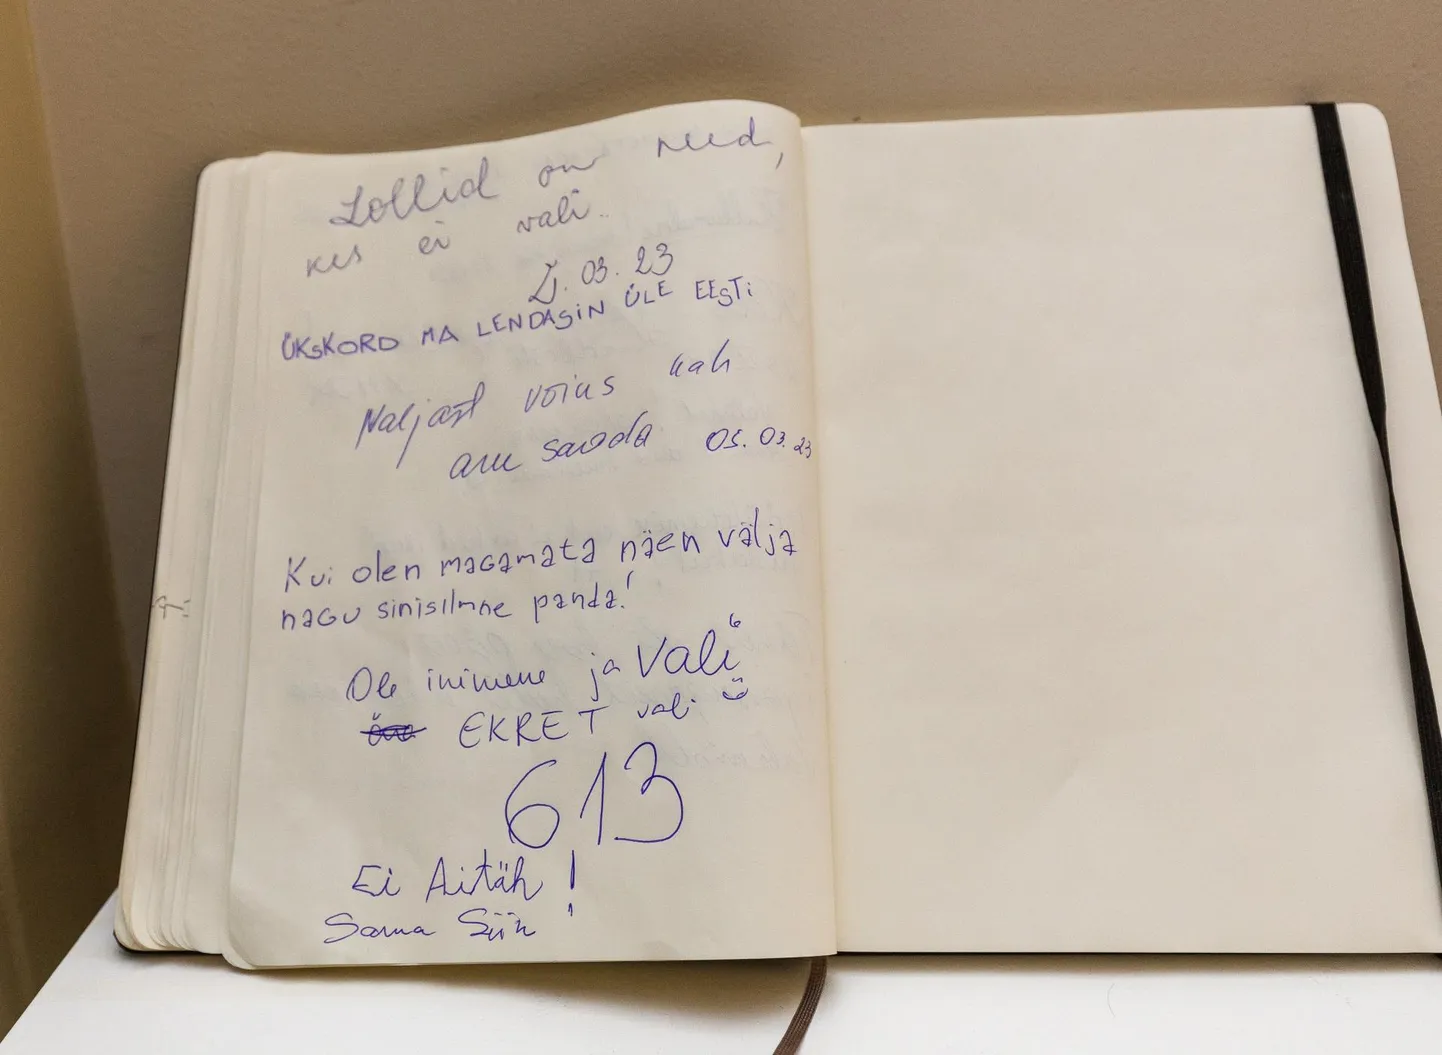 Lollid on need,
kes ei vali.
03. 23
ÜKSKORD MA LENDASIN ÜLE EESTI
Naljast võius kah
aru saada. 05. 03. 23
Kui olen magamata näen välja
nagu sinisilmne panda!
Ole inimene ja Vali
EKRET vali
613
Ei Aitäh!
Sama Siin